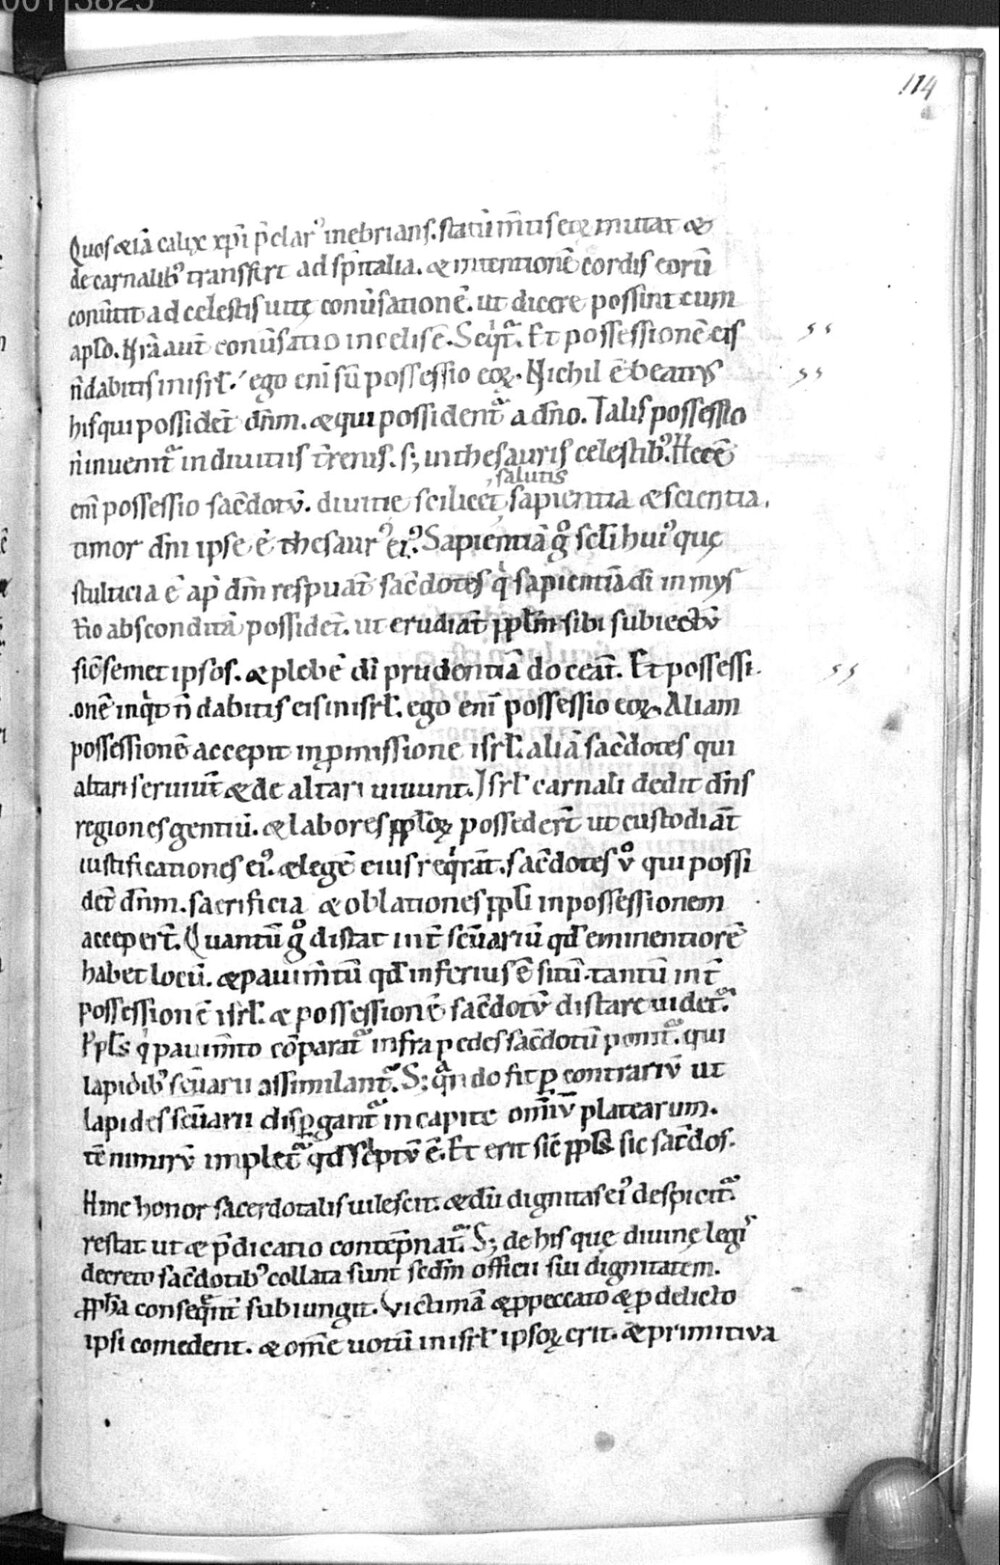 00113825
114
Quos &iā calix xp̄i p̄clarꝰ inebrians. statū m̄tis eoꝝ mutat &
de carnalibꝰ transfert ad sp̄italia. & intentionē cordis eorū
conūtit ad celestis uitę conūsationē. ut dicere possint cum
apl̄o. Nr̄a aut̄ conūsatio in celis ē. Seqͥtᷓ. Et possessionē eis
n̄ dabitis in isrl̄. ego eni̅ sū possessio eoꝝ. Nichil ē beatiꝰ
his qui possidēt dn̄m. & qui possidentᷓ a dn̄o. Talis possessio
n̄ inuenitᷓ in diuitiis t̄renis. s; in thesauris celestibꝰ. Hec ē
eni̅ possessio sac̄dotū. diuitie scilicet, sapientia & scientia.
,salutis
timor dn̄i ipse ē thesaurꝰ eiꝰ. Sapientiā gͦ sc̄li huiꝰ quę
stulticia ē ap̄ dm̄ respuāt sac̄dotes qͥ sapientiā di̅ in mys
t̄io absconditā possidēt. ut erudiāt ppl̄m sibi subiectū
sic̄ semet ipsos. & plebē di̅ prudentiā doceāt. Et possessi
onē inqͥt n̄ dabitis eis in isrl̄. ego eni̅ possessio eoꝝ. Aliam
possessionē accepit in ꝓmissione isrl̄. aliā sac̄dotes qui
altari seruiūt & de altari uiuunt. Isrl̄ carnali dedit dn̄s
regiones gentiū. & labores ppl̄oꝝ possedert̄ ut custodiāt
iustificationes eiꝰ. & legē eius reqͥrāt. sac̄dotes ūͦ qui possi
dēt dn̄m. sacrificia & oblationes ppl̄i in possessionem
accepert̄. Quantū gͦ distat int̄ sc̄uariū qd̄ eminentiorē
habet locū. & pauim̄tū qd̄ inferius ē sitū. tantū int̄
possessionē isrl̄. & possessionē sac̄dotū distare uidet̄ᷓ.
Ppl̄s qͥ pauim̄to cōparatᷓ infra pedes sac̄dotū ponitᷓ. qui
lapidibꝰ sc̄uarii assimilantᷓ. S; qᷓndo fit ꝑ contrariū ut
lapides sc̄uarii disꝑgantᷓ in capite om̄iū platearum.
t̄c nimirū impletᷓ qd̄ sc̄ptū ē. Et erit sic̄ ppl̄s sic sac̄dos.
Hinc honor sacerdotalis uilescit. & dū dignitas eiꝰ despicitᷓ.
restat ut & p̄dicatio contēpnatᷓ. S; de his quę diuinę legiˢ
decreto sac̄dotibꝰ collata sunt scd̄m officii sui dignitatem.
ꝓph̄a conseqᷓnt̄ subiungit. Victimā & ꝓ peccato & ꝓ delicto
ipsi comedent. & om̄e uotū in isrl̄ ipsoꝝ erit. & primitiva